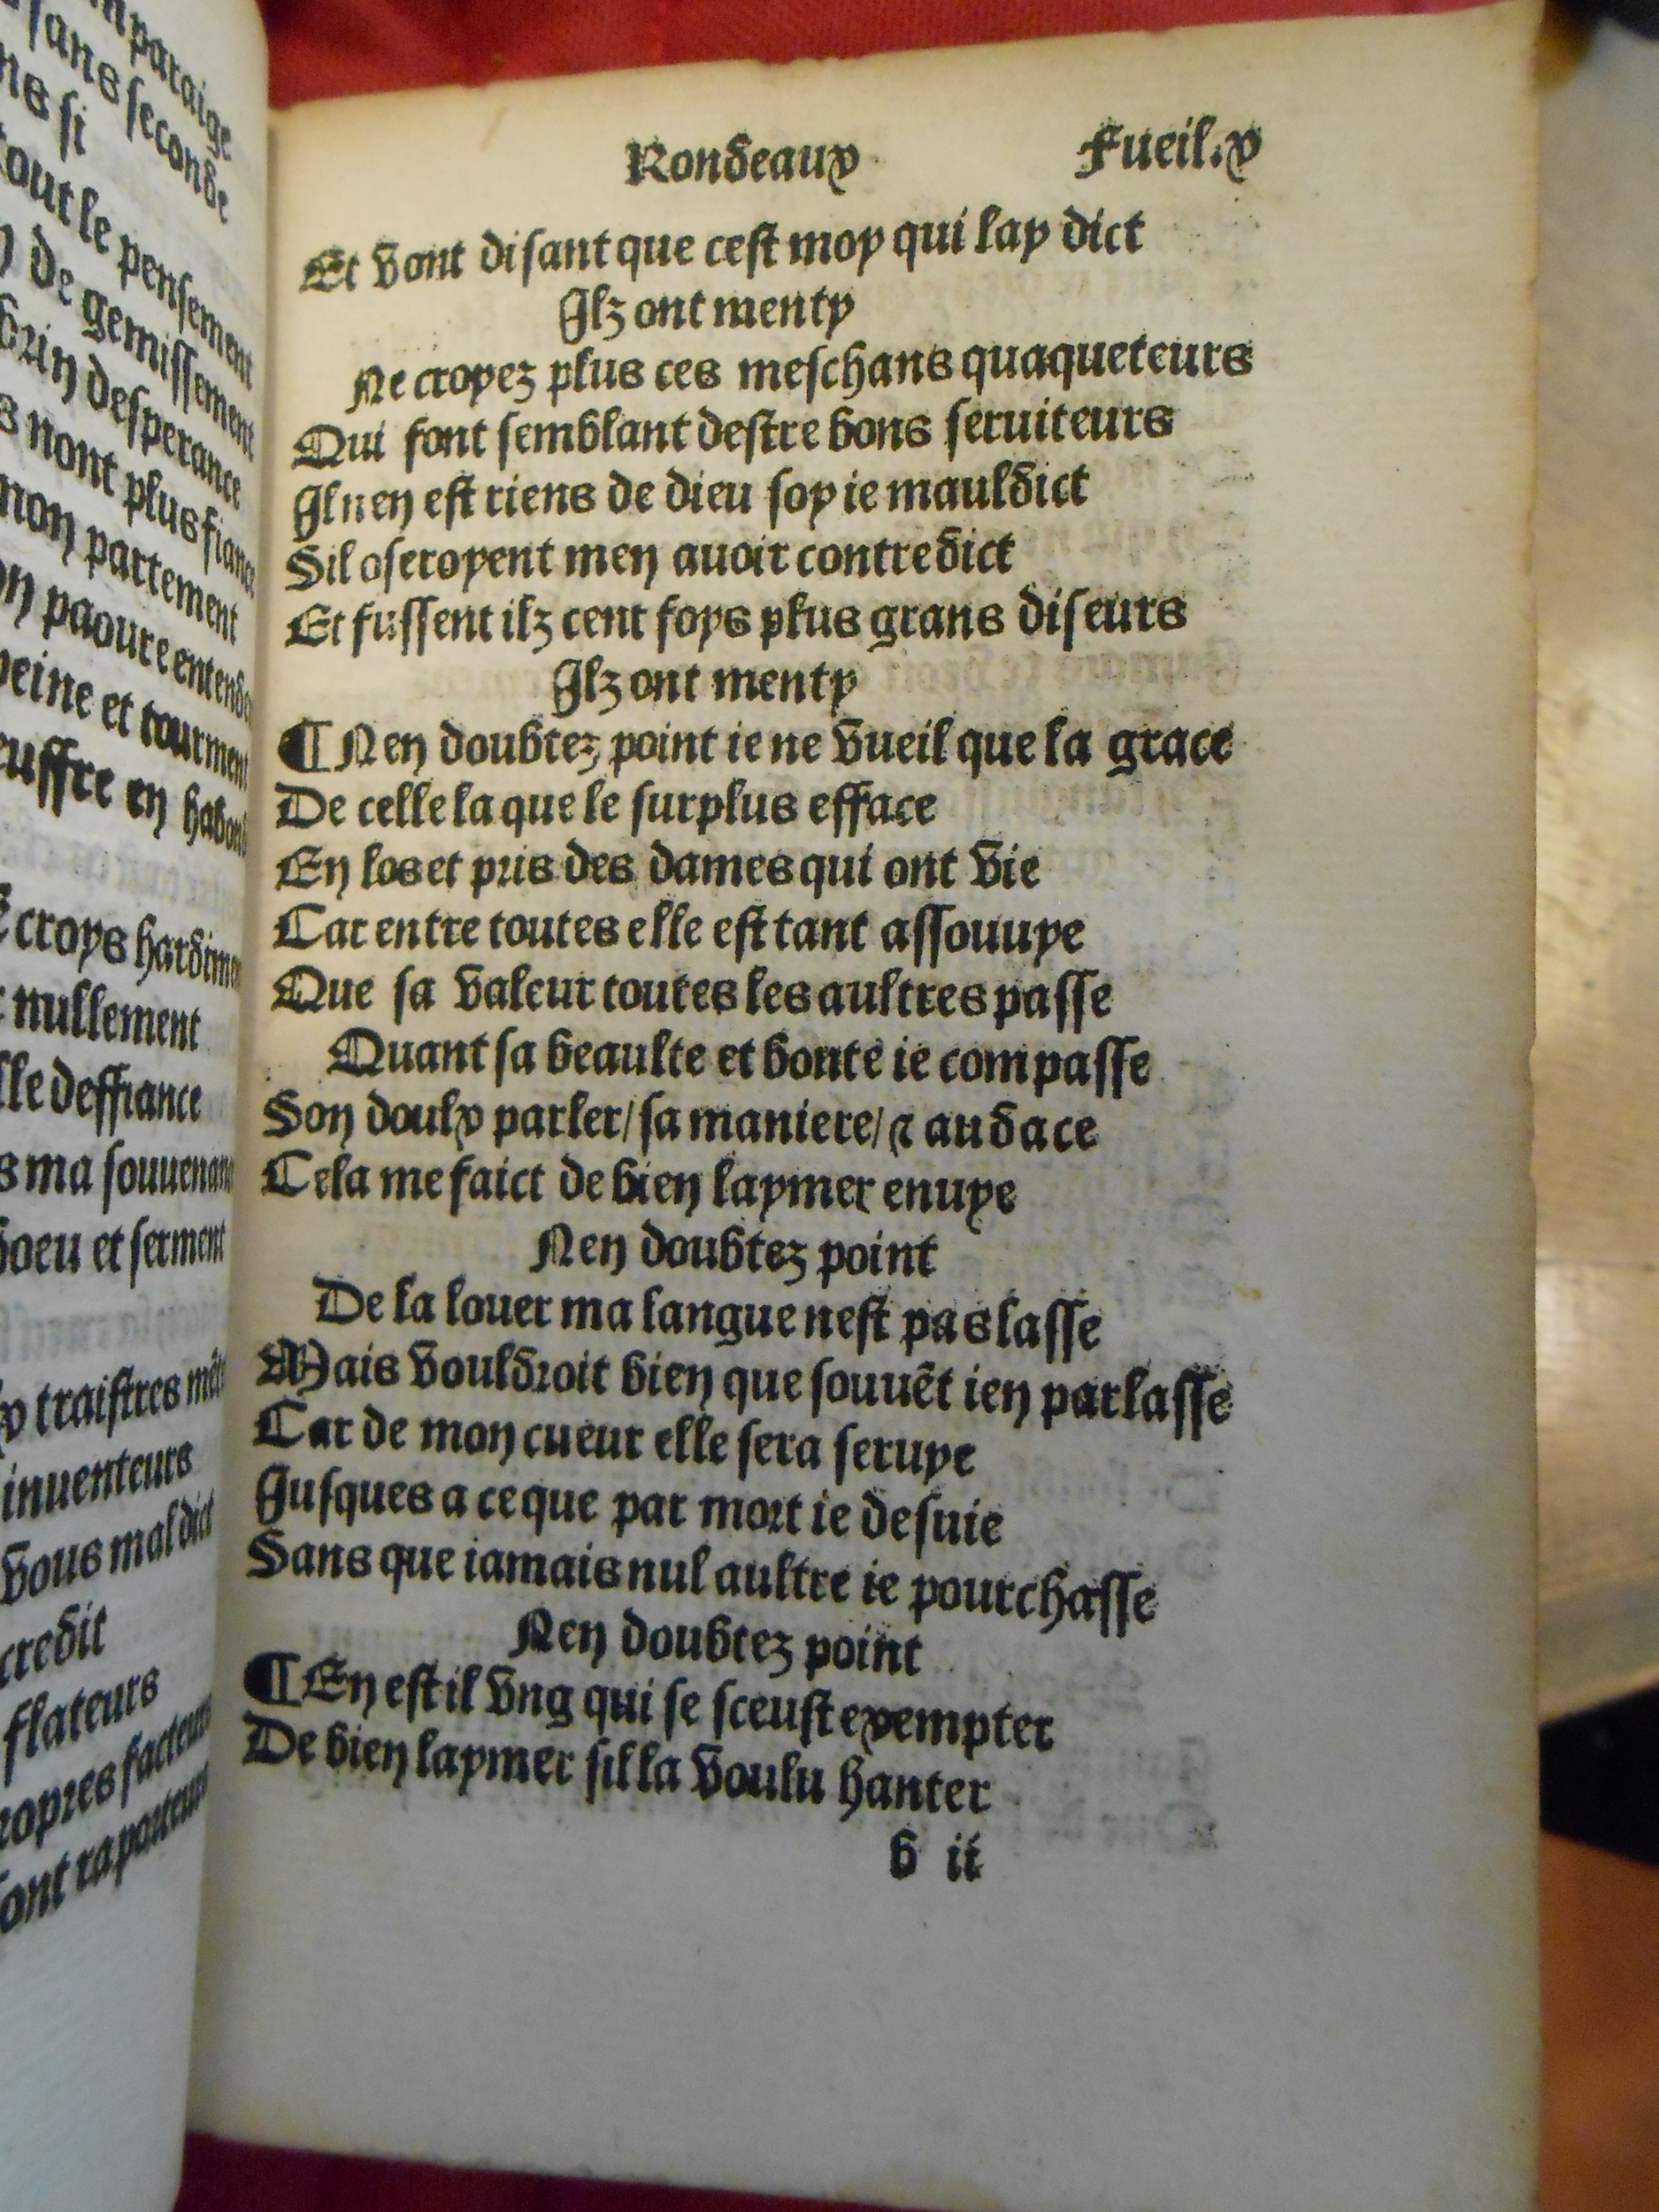 mparaige
sans seconde
ns si
tout le pensement
de gemissement
brin desperance
s nont plus fiance
non partement
on paoure entende
peine et tourment
euffre en habon
croys hardimen
nullement
lle deffiance
s ma souuenan
voeu et serment
x traistres mēt
inuenteurs
vous maldict
credit
flateurs
ropres facteurs
sont raporteurs
Rondeaux Fueil.x
Et vont disant que cest moy qui lay dict
Ilz ont menty
Ne croyez plus ces meschans quaqueteurs
Qui font semblant destre bons seruiteurs
Il nen est riens de dieu soy ie mauldict
Sil oseroyent men auoir contredict
Et fussent ilz cent foys plus grans diseurs
Ilz ont menty
¶ Nen doubtez point ie ne vueil que la grace
De celle la que le surplus efface
En los et pris des dames qui ont vie
Car entre toutes elle est tant assouuye
Que sa valeur toutes les aultres passe
Quant sa beaulte et bonte ie compasse
Son doulx parler/ sa maniere/ ⁊ audace
Cela me faict de bien laymer enuye
Nen doubtez point
De la louer ma langue nest pas lasse
Mais vouldroit bien que souuēt ien parlasse
Car de mon cueur elle sera seruye
Iusques a ce que par mort ie desuie
Sans que iamais nul aultre ie pourchasse
Nen doubtez point
¶ En est il vng qui se sceust exempter
De bien laymer sil la voulu hanter
b ii